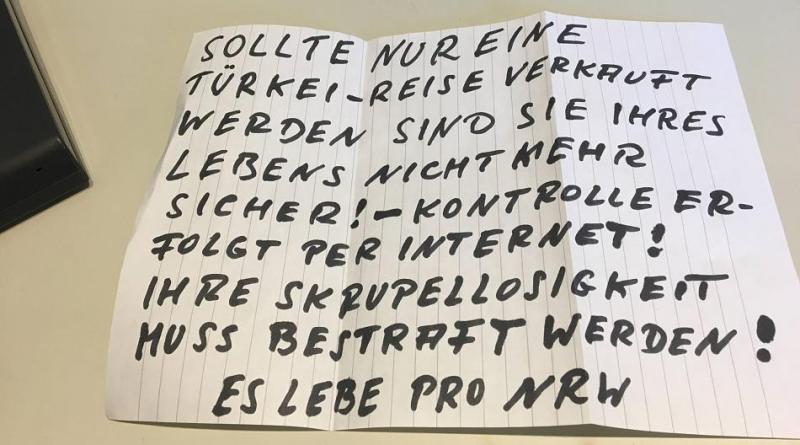 SOLLTE NUR EINE
TÜRKEI-REISE VERKAUFT
WERDEN SIND SIE IHRES
LEBENS NICHT MEHR
SICHER!-KONTROLLE ER-
FOLGT PER INTERNET!
IHRE SKRUPELLOSIGKEIT
MUSS BESTRAFT WERDEN!
ES LEBE PRO NRW